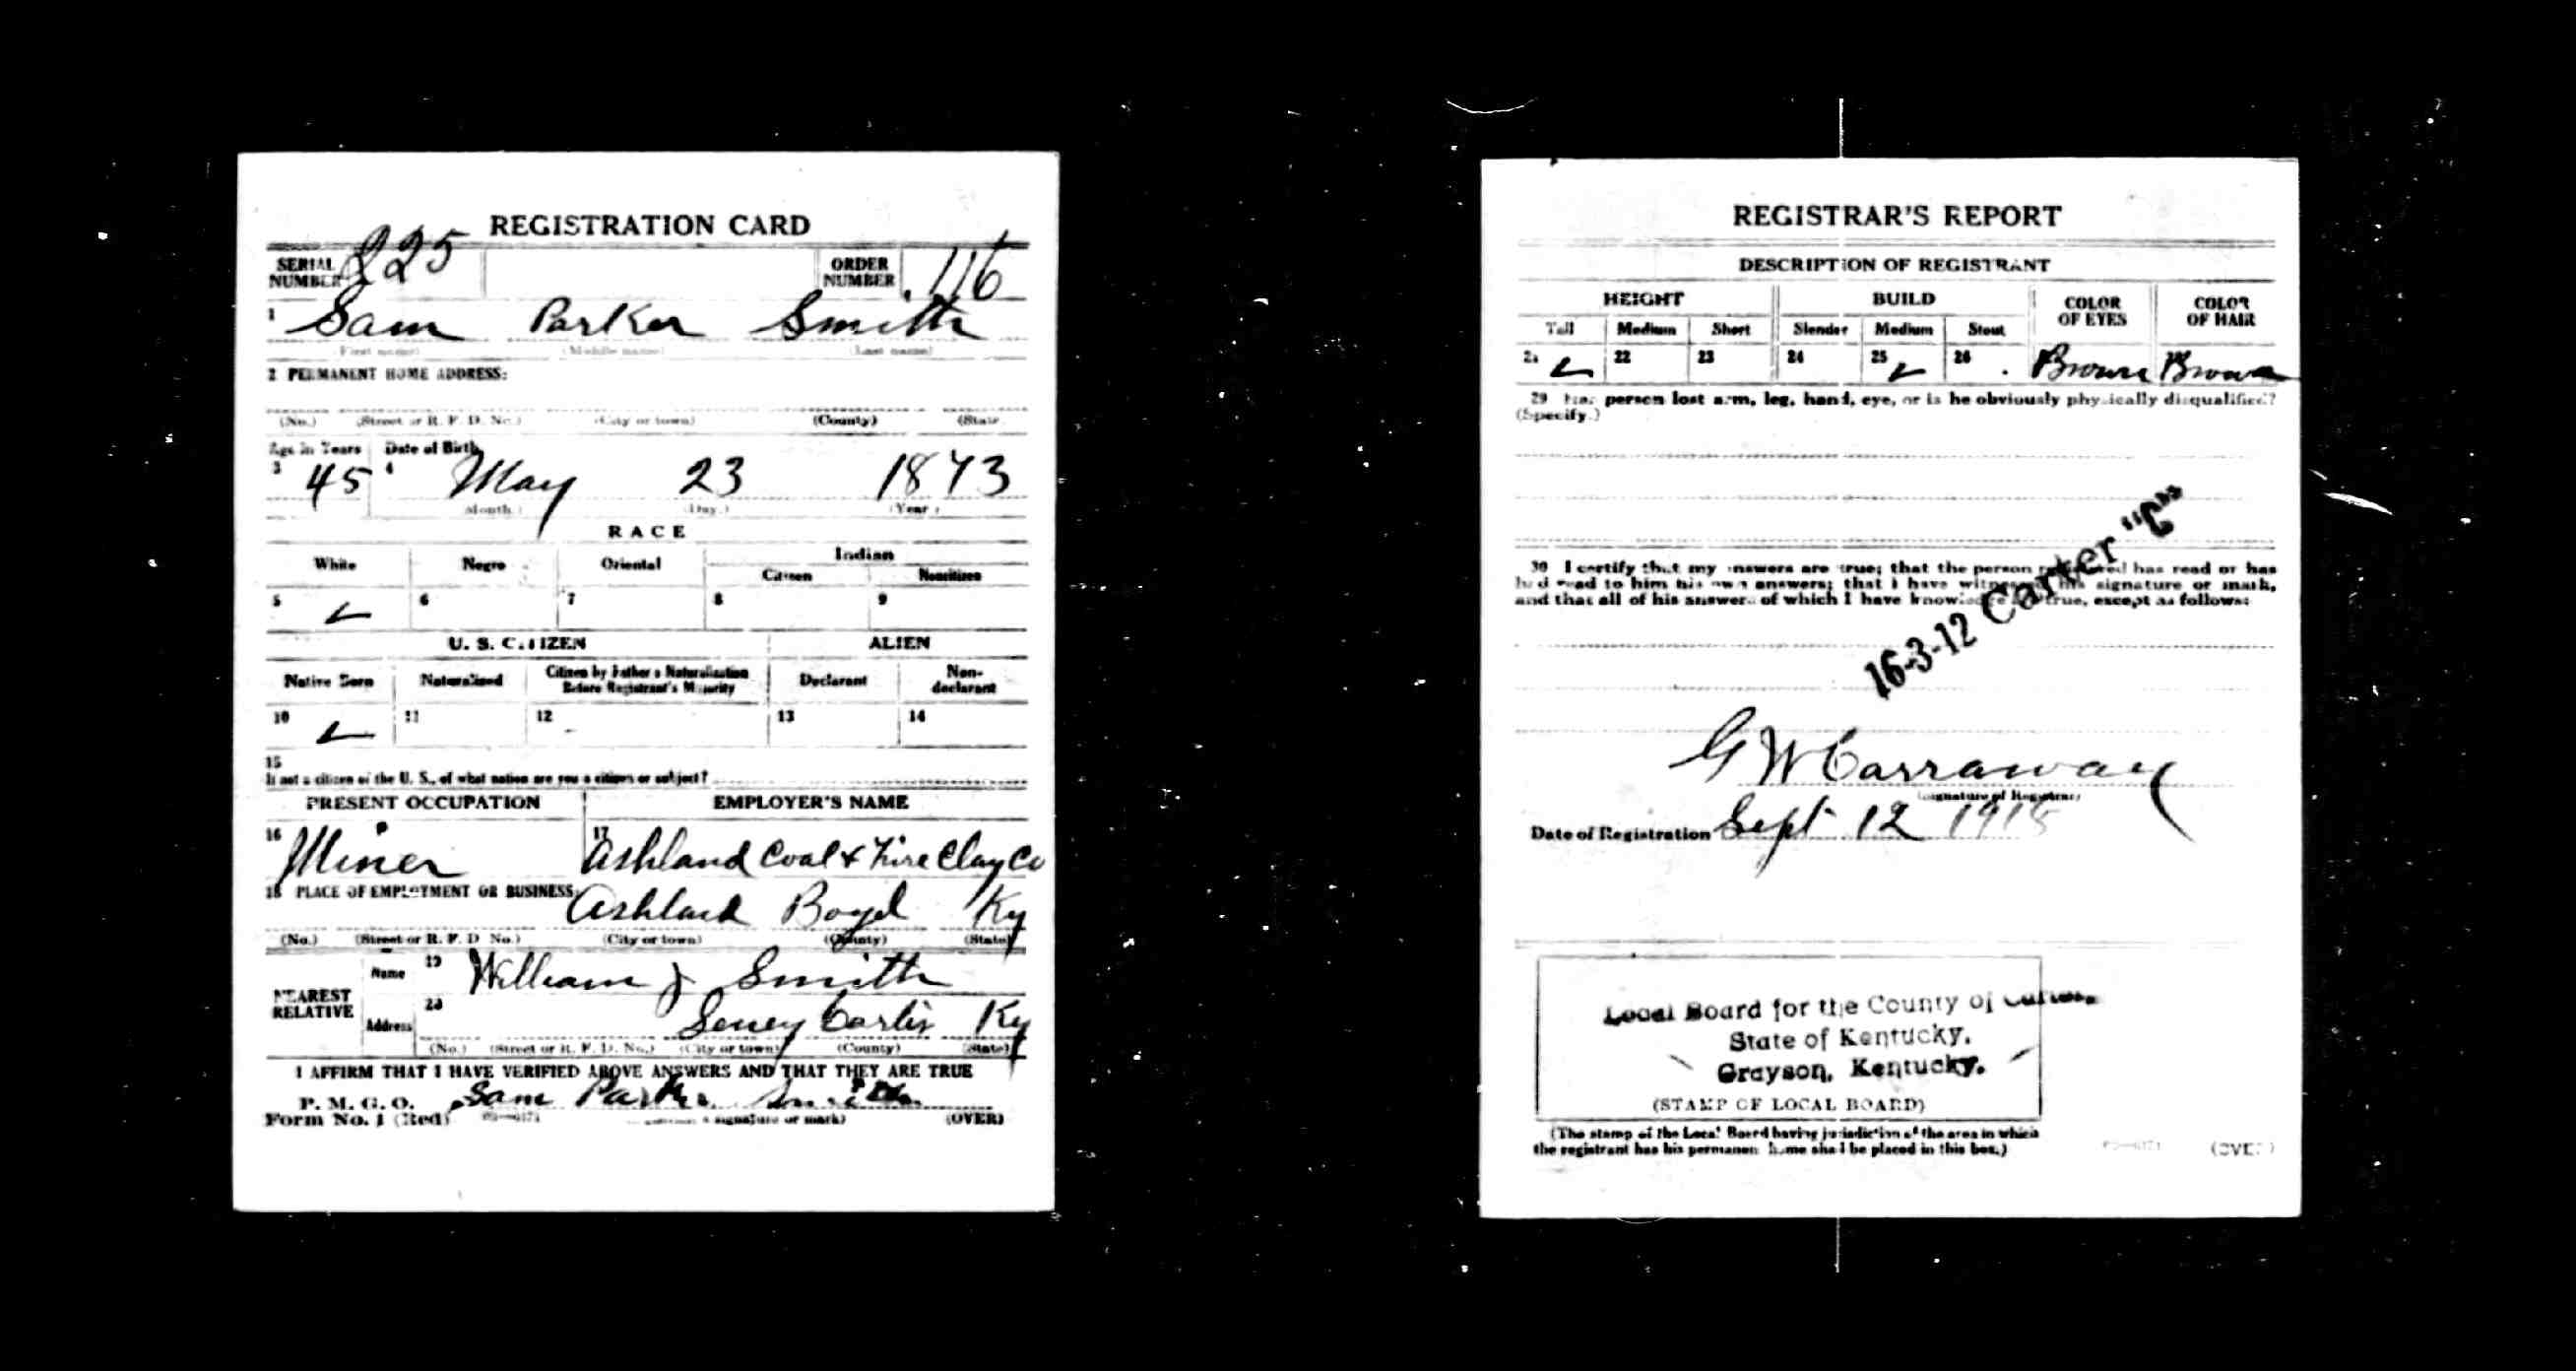 REGISTRATION CARD
SERIAL NUMBER 225 ORDER NUMBER 116
1 Sam Parker Smith
(First name) (Middle name) (Last name)
2 PERMANENT HOME ADDRESS:
(No.) (Street or R. F. D. No.) (City or town) (County) (State)
Age in Years Date of Birth
3 45 4 May 23 1873
(Month.) (Day.) (Year.)
RACE
White Negro Oriental Indian
Citizen Noncitizen
5 ✓ 6 7 8 9
U. S. CITIZEN ALIEN
Native Born Naturalized Citizen by Father's Naturalization Before Registrant's Majority Declarant Non-declarant
10 ✓ 11 12 13 14
15
If not a citizen of the U. S., of what nation are you a citizen or subject?
PRESENT OCCUPATION EMPLOYER'S NAME
16 Miner 17 Ashland Coal & Fire Clay Co
18 PLACE OF EMPLOYMENT OR BUSINESS:
Ashland Boyd Ky
(No.) (Street or R. F. D. No.) (City or town) (County) (State)
NEAREST RELATIVE
Name 19 William J Smith
Address 20 Carter Ky
(No.) (Street or R. F. D. No.) (City or town) (County) (State)
I AFFIRM THAT I HAVE VERIFIED ABOVE ANSWERS AND THAT THEY ARE TRUE
P. M. G. O.
Form No. 1 (Red) Sam Parker Smith
signature or mark) (OVER)
REGISTRAR'S REPORT
DESCRIPTION OF REGISTRANT
HEIGHT BUILD COLOR OF EYES COLOR OF HAIR
Tall Medium Short Slender Medium Stout
21 ✓ 22 23 24 25 ✓ 26 Brown Brown
29 Has person lost arm, leg, hand, eye, or is he obviously physically disqualified?
(Specify.)
30 I certify that my answers are true; that the person registered has read or has
had read to him his own answers; that I have witnessed his signature or mark,
and that all of his answers of which I have knowledge are true, except as follows:
16-3-12 Carter "C"
G W Carraway
(Signature of Registrar)
Date of Registration Sept 12 1918
Local Board for the County of Carter,
State of Kentucky.
Grayson, Kentucky.
(STAMP OF LOCAL BOARD)
(The stamp of the Local Board having jurisdiction of the area in which
the registrant has his permanent home shall be placed in this box.)
(OVER)